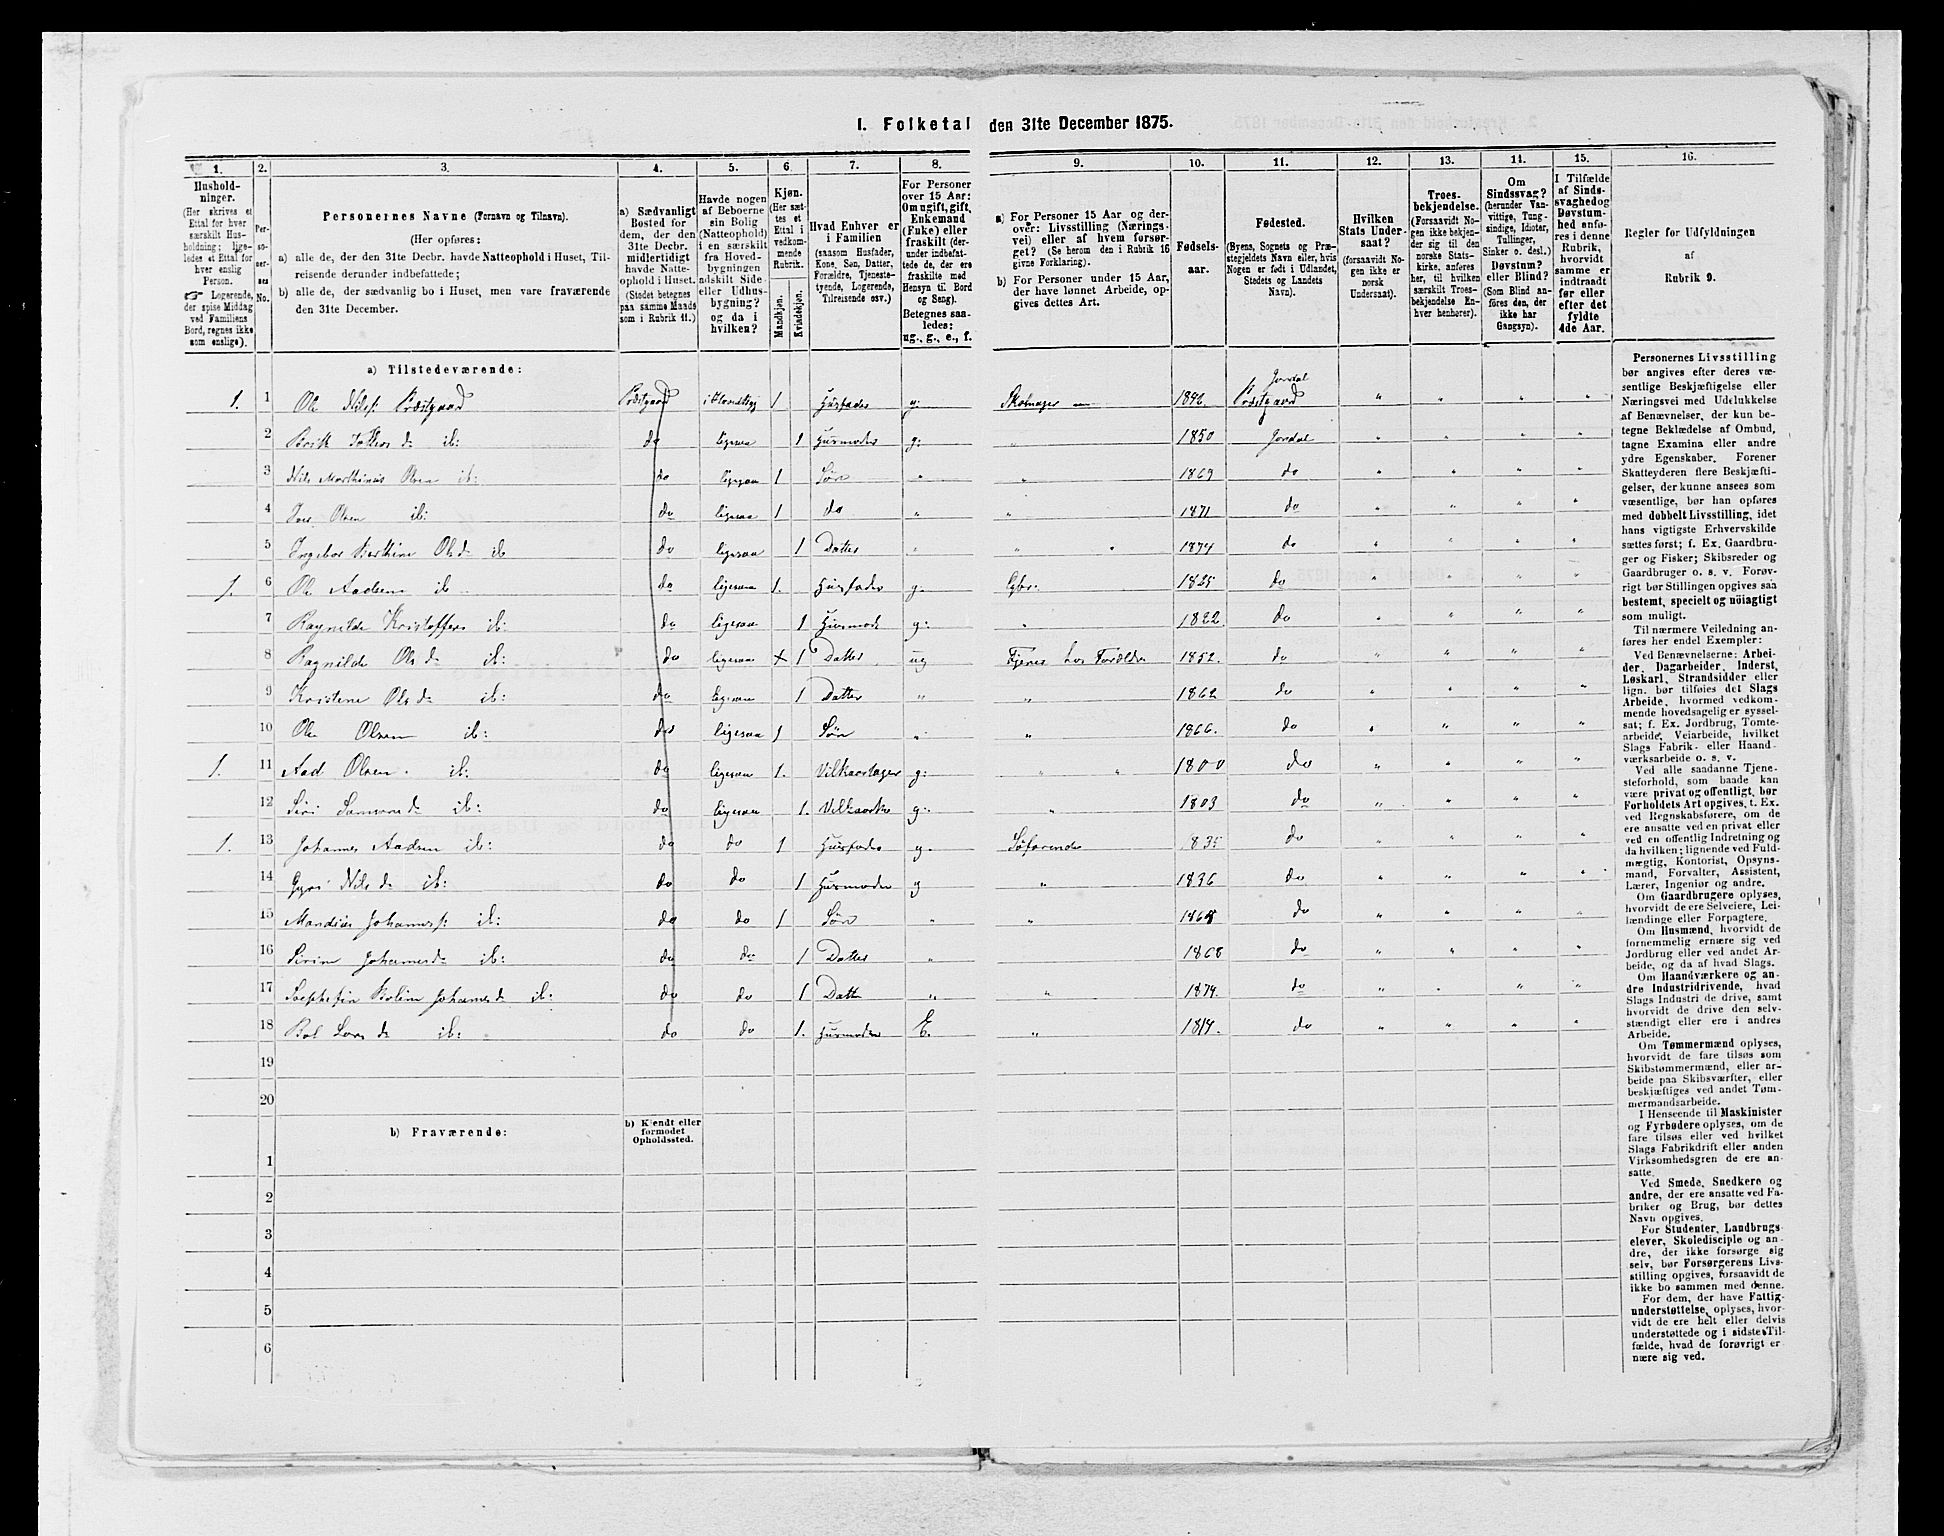 1. Folketal den 31te December 1875.
1. 2. 3. 4. 5. 6. 7. 8. 9. 10. 11. 12. 13. 14. 15. 16.
Hushold-
ninger.
(Her skrives et
Ettal for hver
særskilt Hus-
holdning; lige-
ledes et Ettal for
hver enslig
Person.
☞ Logerende,
der spise Middag
ved Familiens
Bord, regnes ikke
som enslige).
Per-
so-
ner-
nes
No.
Personernes Navne (Fornavn og Tilnavn).
(Her opføres:
a) alle de, der den 31te Decbr. havde Natteophold i Huset, Til-
reisende derunder indbefattede;
b) alle de, der sædvanlig bo i Huset, men vare fraværende
den 31te December.
a) Sædvanligt
Bosted for
dem, der den
31te Decbr.
midlertidigt
havde Natte-
ophold i Huset.
(Stedet betegnes
paa samme Maade
som i Rubrik 11.)
Havde nogen
af Beboerne
sin Bolig
(Natteophold)
i en særskilt
fra Hoved-
bygningen
adskilt Side-
eller Udhus-
bygning?
og da i
hvilken?
Kjøn.
(Her sæt-
tes et
Ettal i
vedkom-
mende
Rubrik.
Mandkjøn.
Kvindekjøn.
Hvad Enhver er
i Familien
(saasom Husfader,
Kone, Søn, Datter,
Forældre, Tjeneste-
tyende, Logerende,
Tilreisende osv.)
For Personer
over 15 Aar:
Om ugift, gift,
Enkemand
(Enke) eller
fraskilt (der-
under indbefat-
tede de, der ere
fraskilte med
Hensyn til Bord
og Seng).
Betegnes saa-
ledes:
ug., g., e., f.
a) For Personer 15 Aar og der-
over: Livsstilling (Nærings-
vei) eller af hvem forsør-
get? (Se herom den i Rubrik 16
givne Forklaring).
b) For Personer under 15 Aar,
der have lønnet Arbeide, op-
gives dettes Art.
Fødsels-
aar.
Fødested.
(Byens, Sognets og Præ-
stegjeldets Navn eller, hvis
Nogen er født i Udlandet,
Stedets og Landets
Navn).
Hvilken
Stats Under-
saat?
(forsaavidt No-
gen ikke er
norsk
Undersaat).
Troes-
bekjendelse.
(Forsaavidt No-
gen ikke bekjen-
der sig til den
norske Stats-
kirke, anføres
her, til hvilken
særskilt Troes-
bekjendelse En-
hver henhører).
Om
Sindssvag?
(herunder Van-
vittige, Tung-
sindige, Idioter,
Tullinger,
Sinker o. desl.)
Døvstum?
eller Blind?
(Som Blind an-
føres den, der
ikke har
Gangsyn).
I Tilfælde
af Sinds-
svaghed og
Døvstum-
hed anfø-
res i denne
Rubrik,
hvorvidt
samme er
indtraadt
før eller
efter det
fyldte
4de Aar.
Regler for Udfyldningen
af
Rubrik 9.
a) Tilstedeværende:
1. 1 Ole Nils: Præstgaard Præstgaard 1 Husfader g. 1842. Jordal Præstgaard " " " "
2 do ligesaa 1 Husmoder g: " 1850 Jordal " " " "
3 Nils Marthinus Olsen ib: do ligesaa 1 Søn " " 1869 do " " " "
4 Iver Olsen ib: do ligesaa 1 do " " 1871 do " " " "
5 Olsd. ib do ligesaa 1 Datter " " 1874 do " " " "
1. 6 Ole Aadsen ib do ligesaa 1. Husfader g. Gbr: 1825 do " " " "
7 Ragnilde Kristoffers ib: do ligesaa 1 Husmode g: " 1822. do " " " "
8 Ragnilde Olsd. ib: do ligesaa 1 Datter ug Tjener hos Forældre 1852. do " " " "
9 Kristene Olsd. ib: do ligesaa 1 Datter " " 1862 do " " " "
10 Ole Olsen ib: do ligesaa 1 Søn " " 1866. do " " " "
1. 11 Aad Olsen. ib: do ligesaa 1. Vilkaarstager g: " " 1800 do " " " "
12 Siri ib: do ligesaa 1. g: " 1803 do " " " "
1. 13 Johannes Aadsen ib: do do 1 Husfader g. Søfarende 1835 do " " " "
14 Gyri Nilsd. ib: do do 1 Husmoder g " 1836 do " " " "
15 Johannes: ib: do do 1 Søn " " do " " " "
16 Sirine Johannesd. ib: do do 1 Datter " 1868 do " " " "
17 Johannesd. ib: do do 1 Datter " " 1874. do " " " "
18 Larsd. ib: do do 1. Husmoder E. " do " " " "
19
20
b) Fraværende:
b) Kjendt eller
formodet
Opholdssted.
1
2
3
4
5
6
Personernes Livsstilling
bør angives efter deres væ-
sentlige Beskjæftigelse eller
Næringsvei med Udelukkelse
af Benævnelser, der kun be-
tegne Beklædelse af Ombud,
tagne Examina eller andre
ydre Egenskaber. Forener
Skatteyderen flere Beskjæfti-
gelser, der kunne ansees som
væsentlige, bør han opføres
med dobbelt Livsstilling, idet
hans vigtigste Erhvervskilde
sættes først; f. Ex. Gaardbru-
ger og Fisker; Skibsreder og
Gaardbruger o. s. v. Forøv-
rigt bør Stillingen opgives saa
bestemt, specielt og nöiagtigt
som muligt.
Til nærmere Veiledning an-
føres her endel Exempler:
Ved Benævnelserne: Arbei-
der, Dagarbeider, Inderst,
Løskarl, Strandsidder eller
lign. bør tilføies det Slags
Arbeide, hvormed vedkom-
mende hovedsagelig er syssel-
sat; f. Ex. Jordbrug, Tomte-
arbeide, Veiarbeide, hvilket
Slags Fabrik- eller Haand-
værksarbeide o. s. v.
Ved alle saadanne Tjene-
steforhold, som baade kan
være privat og offentligt, bør
Forholdets Art opgives, t. Ex.
ved Regnskabsførere, om de
ere ansatte ved en privat eller
ved en offentlig Indretning og
da hvilken; lignende ved Fuld-
mægtig, Kontorist, Opsyns-
mand, Forvalter, Assistent,
Lærer, Ingeniør og andre.
Om Gaardbrugere oplyses,
hvorvidt de ere Selveiere, Lei-
lændinge eller Forpagtere.
Om Husmænd, hvorvidt de
fornemmelig ernære sig ved
Jordbrug eller ved andet Ar-
beide, og da af hvad Slags.
Om Haandværkere og an-
dre Industridrivende, hvad
Slags Industri de drive, samt
hvorvidt de drive den selv-
stændigt eller ere i andres
Arbeide.
Om Tømmermænd oplyses,
hvorvidt de fare tilsøs som
Skibstømmermænd, eller ar-
beide paa Skibsværfter, eller
beskjæftiges ved andet Tøm-
mermandsarbeide.
I Henseende til Maskinister
og Fyrbødere oplyses, om de
fare tilsøs eller ved hvilket
Slags Fabrikdrift eller anden
Virksomhedsgren de ere an-
satte.
Ved Smede, Snedkere og
andre, der ere ansatte ved Fa-
briker og Brug, bør dettes
Navn opgives.
For Studenter, Landbrugs-
elever, Skoledisciple og an-
dre, der ikke forsørge sig
selv, bør Forsørgerens Livs-
stilling opgives, forsaavidt de
ikke bo sammen med denne.
For dem, der have Fattig-
understøttelse, oplyses, hvor-
vidt de ere helt eller delvis
understøttede og i sidste Til-
fælde, hvad de forøvrigt er-
nære sig ved.